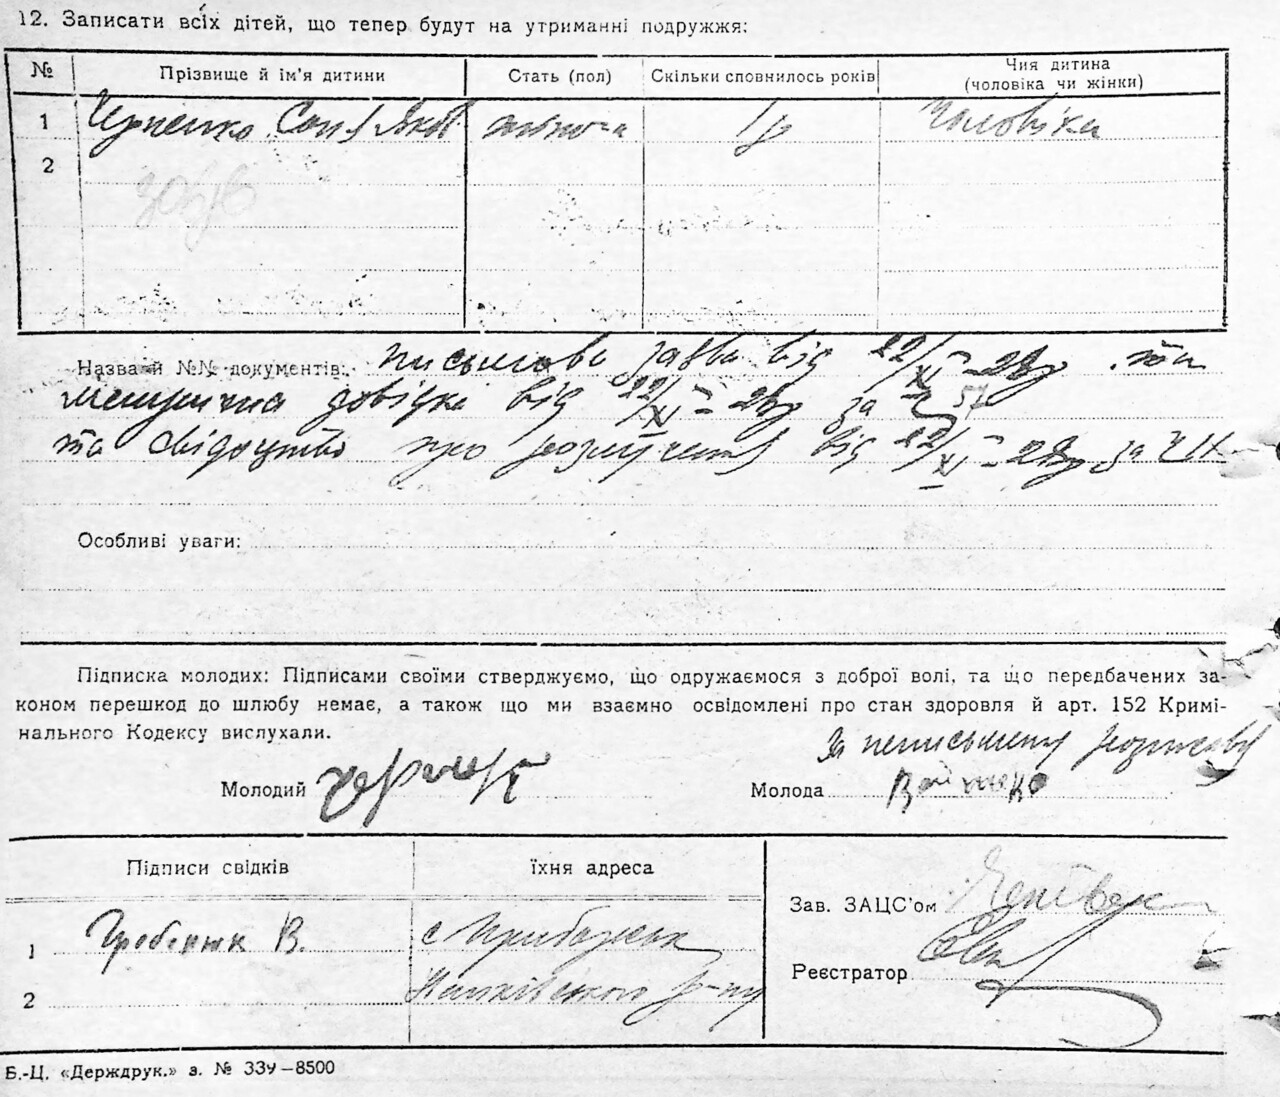 12. Записати всіх дітей, що тепер будут на утриманні подружжя:
№ Прізвище й ім'я дитини Стать (пол) Скільки сповнилось років Чия дитина (чоловіка чи жінки)
1 Сон Яков жіноча 1 р Чоловіка
2
Назва й №№ документів: письмова заява від 22/XI-28р та
довідка від 22/XI-28р за № 57
та свідоцтво про від 22/XI-28р за
Особливі уваги:
Підписка молодих: Підписами своїми стверджуємо, що одружаємося з доброї волі, та що передбачених за-
коном перешкод до шлюбу немає, а також що ми взаємно освідомлені про стан здоровля й арт. 152 Кримі-
нального Кодексу вислухали.
За неписьменну
Молодий Молода
Підписи свідків їхня адреса
Зав. ЗАЦС'ом
1 Гребенюк В. с
Реєстратор
2 р-ну
Б.-Ц. «Держдрук.» з. № 339—8500